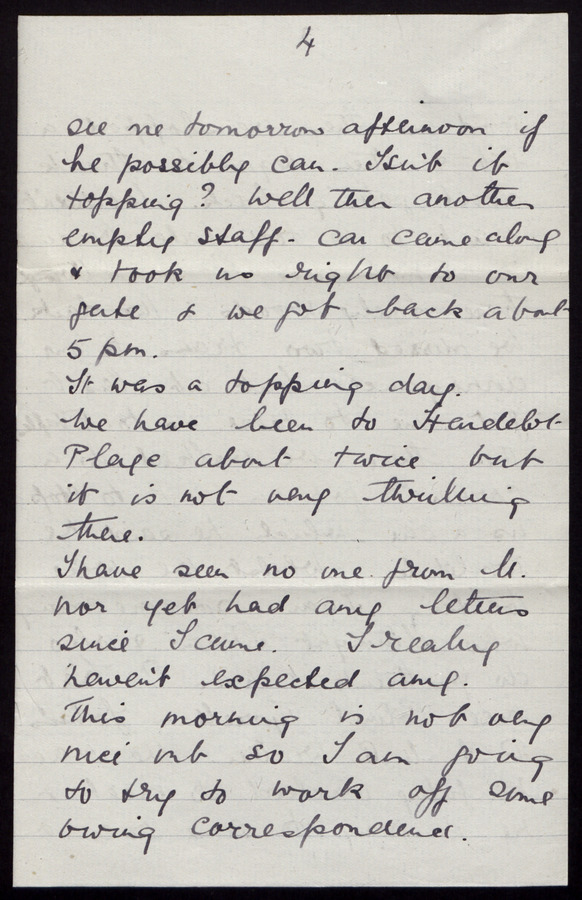 4
see me tomorrow afternoon if
he possibly can. Isn't it
topping? Well then another
empty staff-car came along
& took us right to our
gate & we got back about
5 pm.
It was a topping day.
We have been to Hardelot
Plage about twice but
it is not very thrilling
there.
I have seen no one from U.
nor yet had any letters
since I came. I really
haven't expected any.
This morning is not very
nice out so I am going
to try to work off some
owing correspondence.